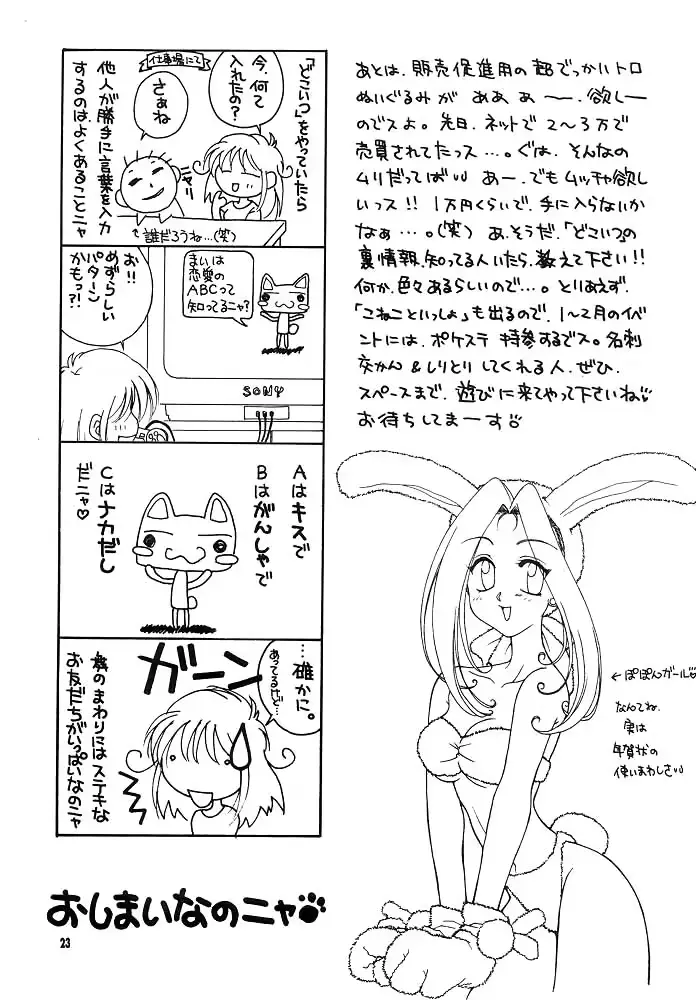 「どこいつ」をやっていたら
仕事場にて
今、何て
入れたの？
さぁね
ニヤリ
他人が勝手に言葉を入力
するのはよくあることニャ
誰だろうね…(笑)
まいは
恋愛の
ABCって
知ってるニャ？
お!!
めずらしい
パターン
かもっ?!
SONY
Aはキスで
Bはがんしゃで
Cはナカだし
だニャ♡
…確かに。
あってるけど…
ガーン
僕のまわりにはステキな
お友だちがいっぱいなのニャ
おしまいなのニャ
23
あとは、販売促進用の超でっかいトロ
ぬいぐるみが ああ ぁ 〜ー、欲しー
のでスよ。先日、ネットで 2〜3万で
売買されてたっス…。ぐは、そんなの
ムリだってばりり あー、でもムッチャ欲し
いっス!! 1万円くらいで、手に入らないか
なぁ…。(笑) あ、そうだ、「どこいつ」の
裏情報、知ってる人いたら、教えて下さい!!
何か、色々あるらしいので…。とりあえず、
「こねこといっしょ」も出るので、1〜2月のイベ
ントには、ポケステ 持参するでス。名刺
交かん&しりとり してくれる人、ぜひ、
スペースまで、遊びに来てやって下さいね♡
お待ちしてまーす♡
←ぽぽんガール♡
なんてね、
実は
年賀状の
使いまわしさりり